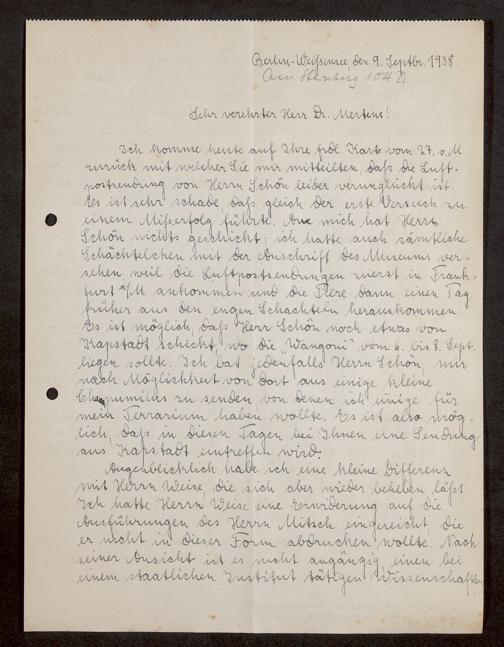 Berlin-Weißensee, den 9. Septbr. 1938.
Am Steinberg 104 a
Sehr verehrter Herr Dr. Mertens!
Ich komme heute auf Ihre frdl. Karte vom 27. v. M.
zurück mit welcher Sie mir mitteilten, daß die Luft-
postsendung von Herrn Schön leider verunglückt ist.
Es ist sehr schade, daß gleich der erste Versuch zu
einem Mißerfolg führte. An mich hat Herr
Schön nichts geschickt; ich hatte auch sämtliche
Schächtelchen mit der Anschrift des Museums ver-
sehen weil die Luftpostsendungen zuerst in Frank-
furt a/M ankommen und die Tiere dann einen Tag
früher aus den engen Schachteln herauskommen.
Es ist möglich, daß Herr Schön noch etwas von
Kapstadt schickt, wo die "Wangoni" vom 6. bis 8. Sept.
liegen sollte. Ich bat jedenfalls Herrn Schön, mir
nach Möglichkeit von dort aus einige kleine
Ch. pumilus zu senden von denen ich einige für
mein Terrarium haben wollte. Es ist also mög-
lich, daß in diesen Tagen bei Ihnen eine Sendung
aus Kapstadt eintreffen wird.
Augenblicklich habe ich eine kleine Differenz
mit Herrn Weise, die sich aber wieder beheben läßt.
Ich hatte Herrn Weise eine Erwiderung auf die
Ausführungen des Herrn Mitsch eingereicht die
er nicht in dieser Form abdrucken wollte. Nach
seiner Ansicht ist es nicht angängig, einen bei
einem staatlichen Institut tätigen Wissenschaftler